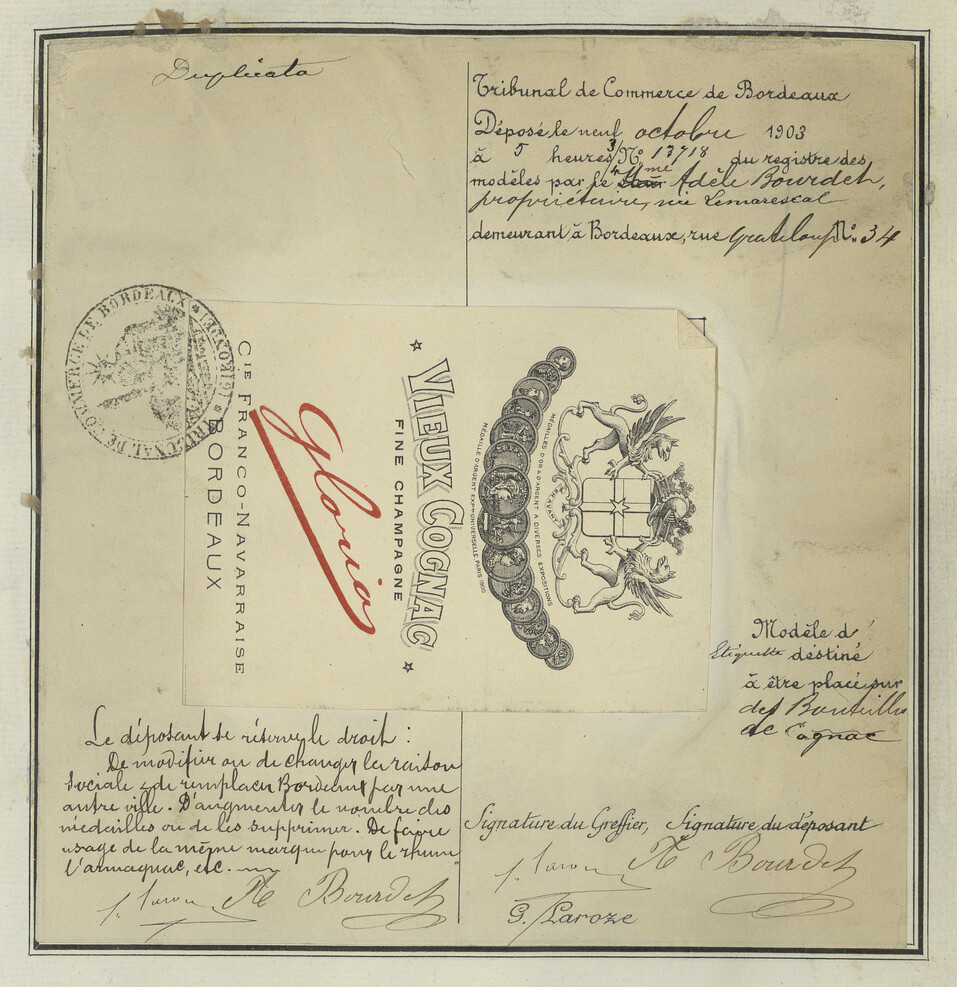 Duplicata
Tribunal de Commerce de Bordeaux
Déposé le neuf octobre 1903
à 5 heures 3/4 N° 13718 du registre des
modèles par le Sieur Mme Adèle Bourdet,
propriétaire, née Lemarescal
demeurant à Bordeaux, rue Grateloup N° 34
TRIBUNAL DE COMMERCE DE BORDEAUX
MÉDAILLES D'OR & D'ARGENT A DIVERSES EXPOSITIONS
MÉDAILLE D'ARGENT EXPon UNIVERSELLE PARIS 1900
VIEUX COGNAC
FINE CHAMPAGNE
Gloria
CIE FRANCO-NAVARRAISE
BORDEAUX
Modèle d'
Etiquette destiné
à être placé sur
des Bouteilles
de Cognac
Le déposant se réserve le droit :
De modifier ou de changer la raison
sociale & de remplacer Bordeaux par une
autre ville. D'augmenter le nombre des
médailles ou de les supprimer. De faire
usage de la même marque pour le rhum
l'armagnac, etc.
Bourdet
Signature du Greffier, Signature du déposant
Bourdet
G. Laroze